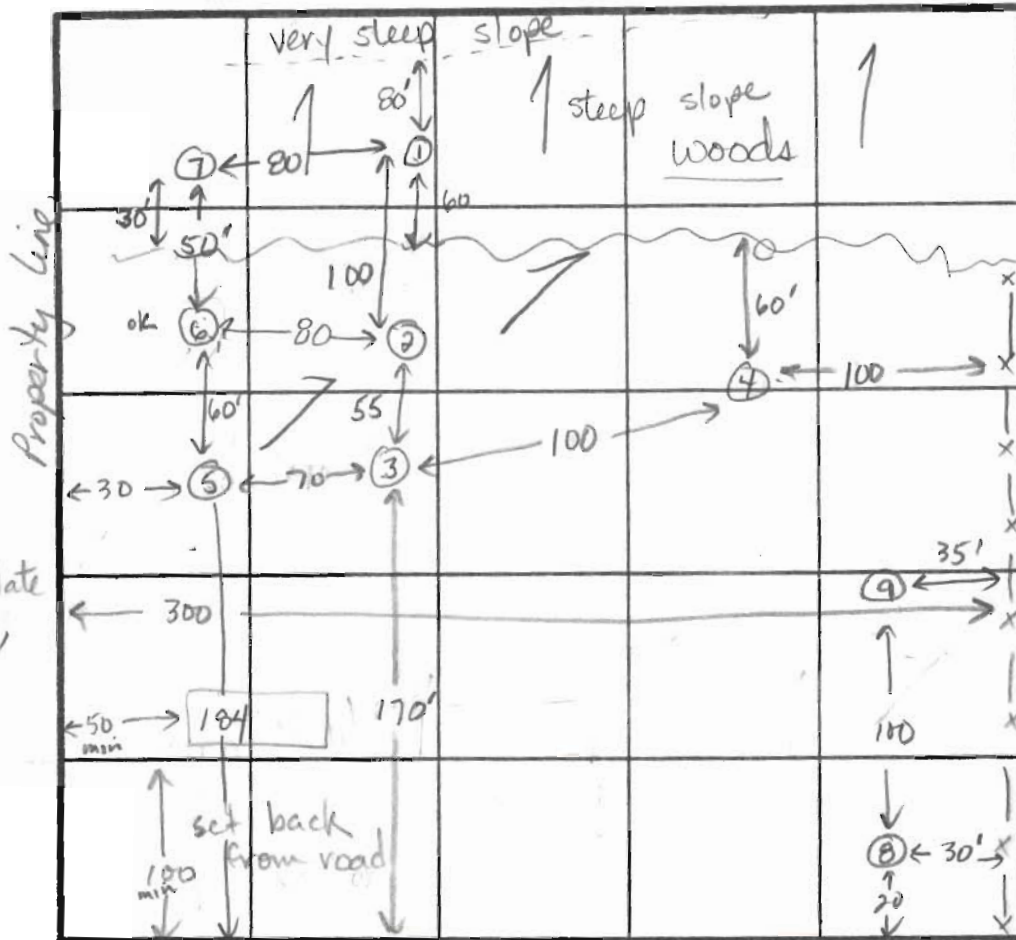 very steep slope
80'
steep slope
woods
7
80
1
30'
60
50'
Property Line
100
ok
6
80
2
60'
4
100
60'
55
100
30
5
70
3
ate
300
9
35'
50
min
184
170'
100
set back
from road
100
min
8
30'
20